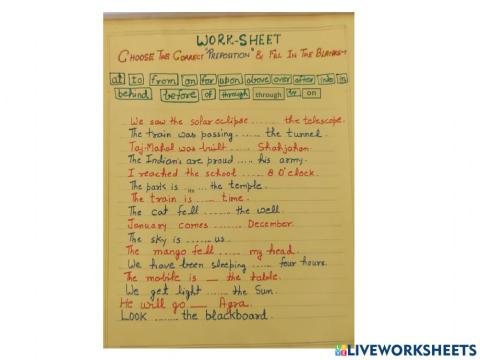 WORK-SHEET
CHOOSE THE CORRECT "PREPOSITION" & FILL IN THE BLANKS-
at to from on for upon above over after into in
behind before of through through by on
We saw the solar eclipse ...... the telescope.
The train was passing ...... the tunnel.
Taj-Mahal was built ...... Shahjahan.
The Indian's are proud ..... his army.
I reached the school ...... 8 O'clock.
The park is ... the temple.
The train is ..... time.
The cat fell ........ the well.
January comes ....... December.
The sky is ...... us.
The mango fell ...... my head.
We have been sleeping ....... four hours.
The mobile is _ the table.
We get light ...... the Sun.
He will go __ Agra.
LOOK ...... the blackboard.
LIVEWORKSHEETS